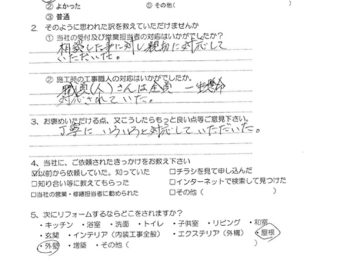 ② よかった ⑤ その他(
③ 普通
2. そのように思われた訳を教えていただけませんか
① 当社の受付及び営業担当者の対応はいかがでしたか?
相談した事に対し親切に対応して
いただいた。
② 施工班の工事職人の対応はいかがでしたか。
職(人)さんは全員 一生懸命
対応されていた。
3. お褒めいただける点、又こうしたらもっと良い点等ご意見下さい。
丁寧に いろいろと対応していただいた。
4. 当社に、ご依頼されたきっかけをお教え下さい
以前から依頼していた、知っていた □チラシを見て申し込んだ
□知り合い等に教えてもらった □インターネットで検索して見つけた
□当社の営業・修繕担当者に勧められた □その他(
5. 次にリフォームするならどこをされますか?
・キッチン ・浴室 ・洗面 ・トイレ ・子供室 ・リビング ・和室
・玄関 ・インテリア(内装工事全般) ・エクステリア(外構) ・屋根
・外壁 ・増築 ・その他(